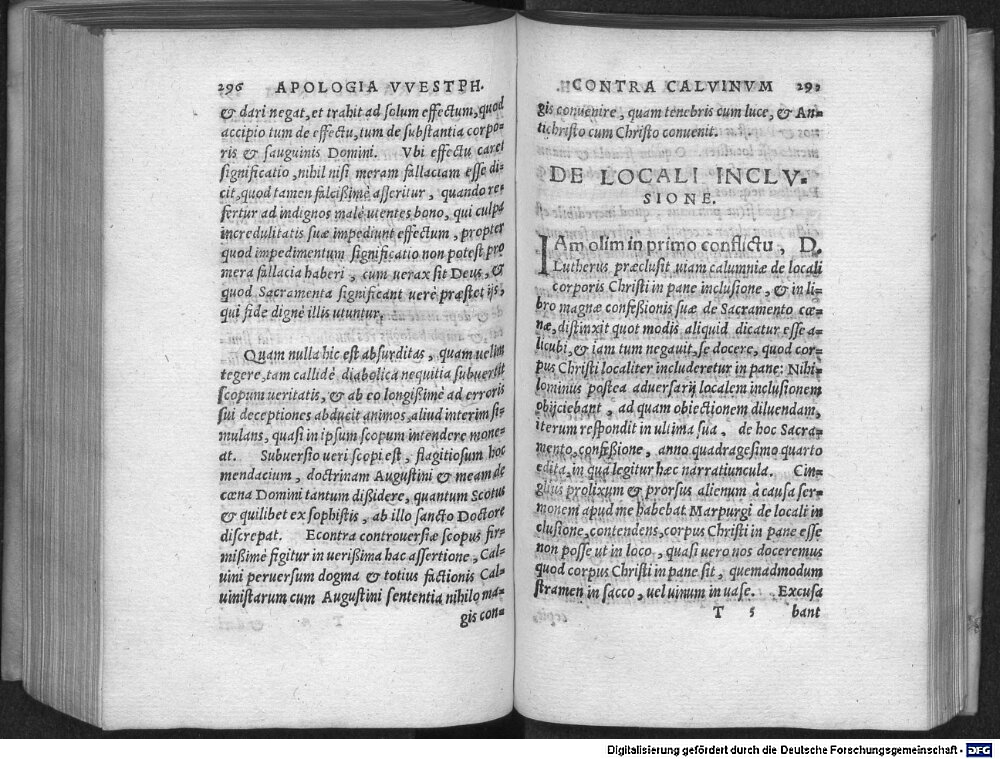 296 APOLOGIA VVESTPH.
& dari negat, et trahit ad solum effectum, quod
accipio tum de effectu, tum de substantia corpo-
ris & sauguinis Domini. Vbi effectu caret
significatio, nihil nisi meram fallaciam esse di-
cit, quod tamen falcißimè asseritur, quando re-
fertur ad indignos malè utentes bono, qui culpa
incredulitatis suæ impediunt effectum, propter
quod impedimentum significatio non potest pro
mera fallacia haberi, cum uerax sit Deus, &
quod Sacramenta significant uerè præstet ijs,
qui fide dignè illis utuntur.
Quam nulla hic est absurditas, quam uelim
tegere, tam callidè diabolica nequitia subuertit
scopum ueritatis, & ab eo longißimè ad erroris
sui deceptiones abducit animos, aliud interim si-
mulans, quasi in ipsum scopum intendere mone-
at. Subuersio ueri scopi est, flagitiosum hoc
mendacium, doctrinam Augustini & meam de
cœna Domini tantum dißidere, quantum Scotus
& quilibet ex sophistis, ab illo sancto Doctore
discrepat. Econtra controuersiæ scopus fir-
mißimè figitur in uerißima hac assertione, Cal-
uini peruersum dogma & totius factionis Cal-
uinistarum cum Augustini sententia nihilo ma-
gis con-
CONTRA CALVINVM
gis conuenire, quam tenebris cum luce, & An-
tichristo cum Christo conuenit.
DE LOCALI INCLV-
SIONE.
IAm olim in primo conflictu, D.
Lutherus præclusit uiam calumniæ de locali
corporis Christi in pane inclusione, & in li-
bro magnæ confeßionis suæ de Sacramento cœ-
næ, distinxit quot modis aliquid dicatur esse a-
licubi, & iam tum negauit, se docere, quod cor-
pus Christi localiter includeretur in pane: Nihi-
lominus postea aduersarij localem inclusionem
obijciebant, ad quam obiectionem diluendam,
iterum respondit in ultima sua, de hoc Sacra-
mento, confeßione, anno quadragesimo quarto
edita, in qua legitur hæc narratiuncula. Cin-
glius prolixum & prorsus alienum à causa ser-
monem apud me habebat Marpurgi de locali in
clusione, contendens, corpus Christi in pane esse
non posse ut in loco, quasi uero nos doceremus
quod corpus Christi in pane sit, quemadmodum
stramen in sacco, uel uinum in uase. Excusa
T 5 bant
Digitalisierung gefördert durch die Deutsche Forschungsgemeinschaft - DFG